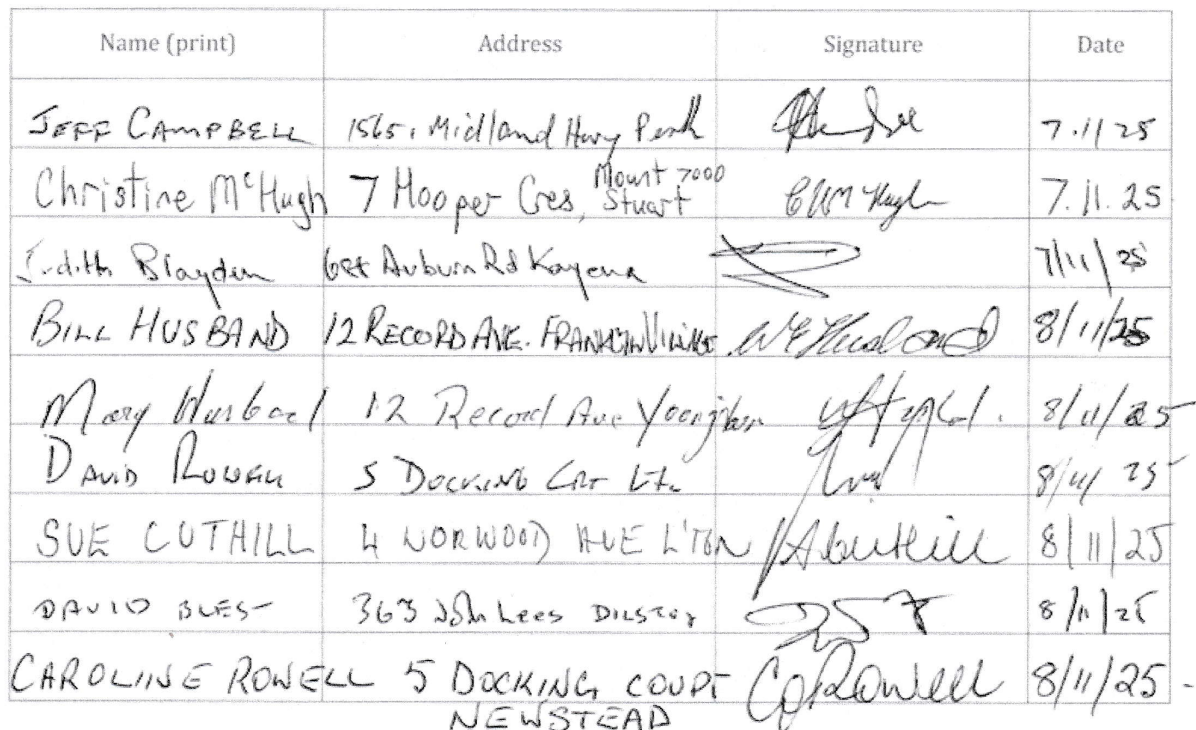 Name (print) Address Signature Date
JEFF CAMPBELL 1565, Midland Hwy Perth 7.11 25
Christine McHugh 7 Hooper Cres, Mount Stuart 7000 CM McHugh 7.11.25
Judith Blayden Auburn Rd Kayena 7/11/25
BILL HUSBAND 12 RECORD AVE. FRANKLIN VILLAGE W E Husband 8/11/25
Mary Husband 12 Record Ave Youngtown 8/11/25
DAVID ROWELL 5 DOCKING CRT 8/11/25
SUE CUTHILL 4 NORWOOD AVE L'TON SCuthill 8/11/25
DAVID BLEST 363 John Lees 8/11/25
CAROLINE ROWELL 5 DOCKING COURT CJ Rowell 8/11/25
NEWSTEAD